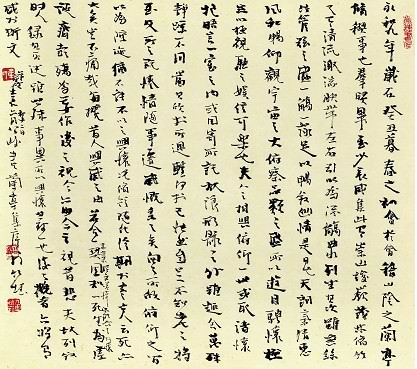 永和九年歲在癸丑暮春之初會於會稽山陰之蘭亭
脩禊事也群賢畢至少長咸集此地有崇山峻嶺茂林脩竹
又有清流激湍映帶左右引以為流觴曲水列坐其次雖無絲
竹管弦之盛一觴一詠亦足以暢敘幽情是日也天朗氣清惠
風和暢仰觀宇宙之大俯察品類之盛所以遊目騁懷
足以極視聽之娛信可樂也夫人之相與俯仰一世或取諸懷
抱悟言一室之內或因寄所託放浪形骸之外雖趣舍萬殊
靜躁不同當其欣於所遇暫得於己快然自足不知老之將
至及其所之既惓情隨事遷感慨係之矣向之所欣俯仰之間
以為陳迹猶不能不以之興懷況脩短隨化終期於盡古人云死生亦
大矣豈不痛哉每攬昔人興感之由若合一契固知一死生為虛
誕齊彭殤為妄作後之視今亦由今之視昔悲夫故列敘
時人錄其所述雖世殊事異所以興懷其致一也後之攬者亦將有
感於斯文